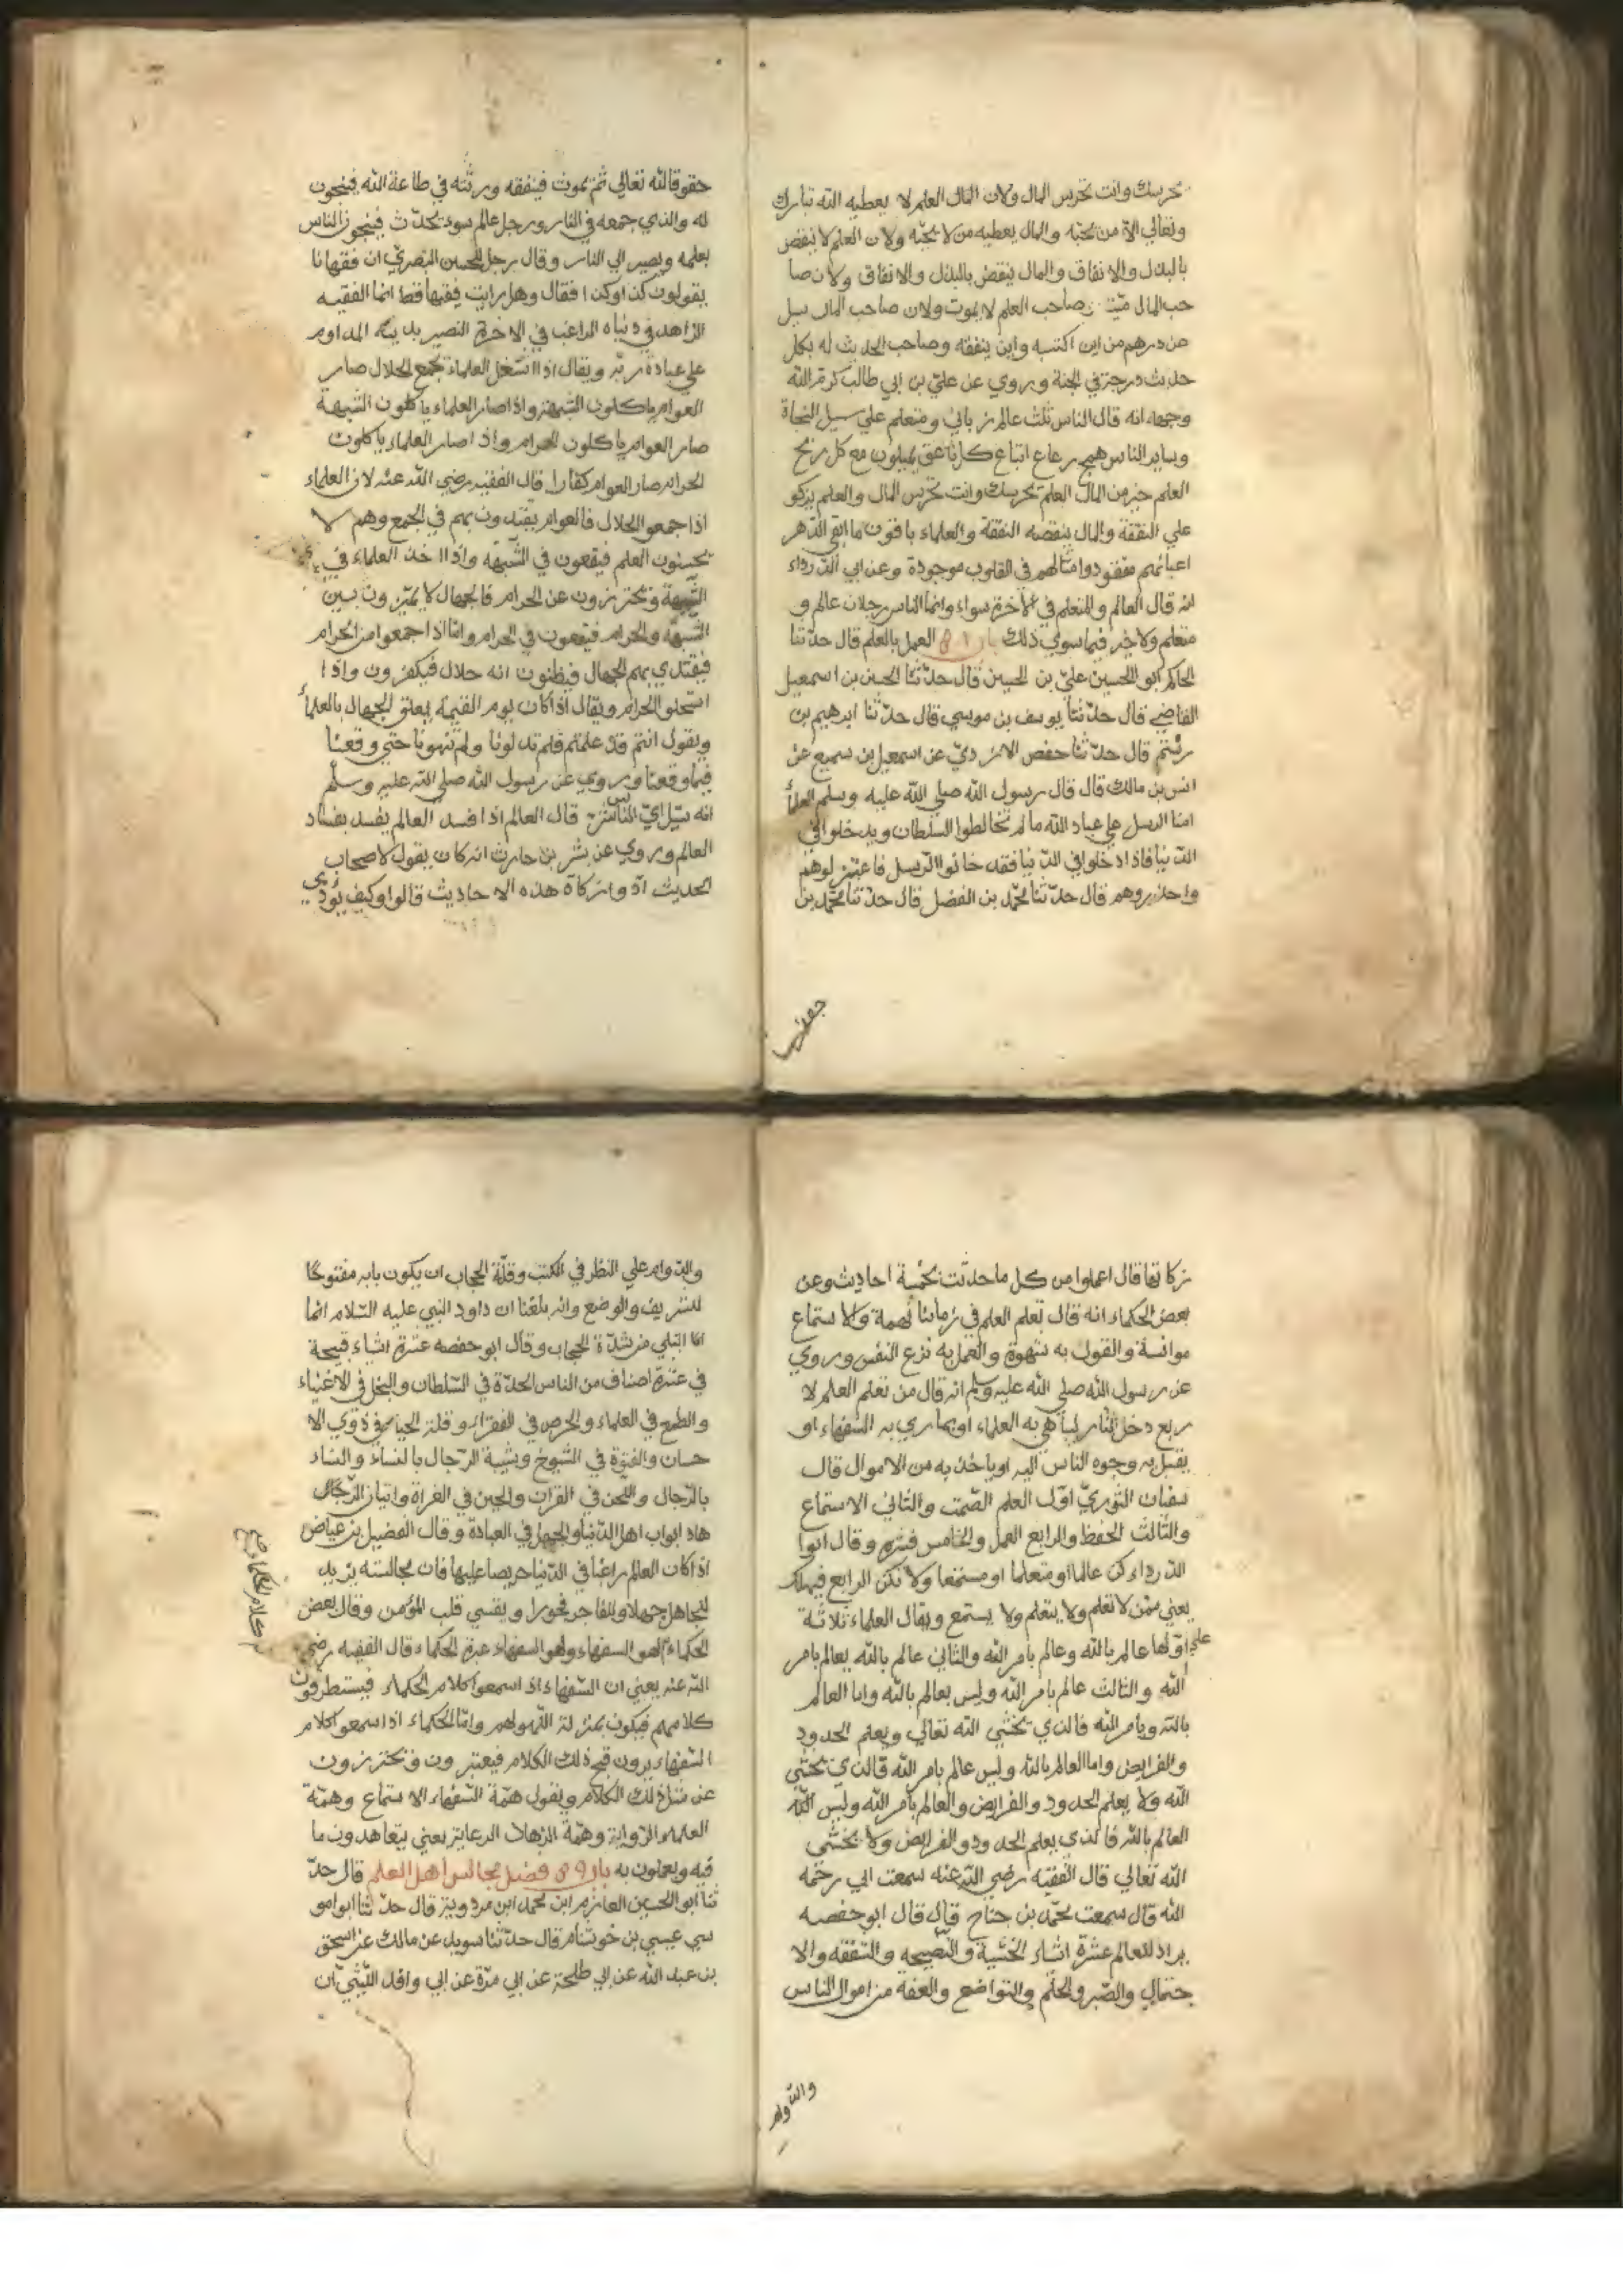 يحرسك وانت تحرس المال ولان المال العلم لا يعطيه الله تبارك
وتعالي الا من يحبّه والمال يعطيه من لا يحبّه ولان العلم لا ينقص
بالبذل والانفاق والمال ينقص بالبذل والانفاق ولان صا
حب المال ميّت صاحب العلم لا يموت ولان صاحب المال يسل
عن درهم من اين اكتسبه واين ينفقه وصاحب الحديث له بكل
حديث درجة في الجنة وروي عن عليّ بن ابي طالب كرّم الله
وجهه انه قال الناس ثلث عالم ربانيّ ومتعلم علي سبيل النجاة
وساير الناس همج رعاع اتباع كل ناعق يميلون مع كل ريح
العلم خير من المال العلم يحرسك وانت تحرس المال والعلم يزكو
علي النفقة والمال ينقصه النفقة والعلماء باقون ما بقي الدّهر
اعيانهم مفقودوا مثالهم في القلوب موجودة وعن ابي الدّرداء
انه قال العالم والمتعلم في الآخرة سواء وانما الناس رجلان عالم و
متعلم ولا خير فيما سوي ذلك باب ٨ العمل بالعلم قال حدّثنا
الحاكم ابو الحسين عليّ بن الحسين قال حدّثنا الحسين بن اسمعيل
القاضي قال حدّثنا يوسف بن موسي قال حدّثنا ابرهيم بن
رستم قال حدّثنا حفص الابردي عن اسمعيل بن سميع عن
انس بن مالك قال قال رسول الله صلي الله عليه وسلم العلمأ
امنا الرسل علي عباد الله ما لم تخالطوا السلطان ويدخلوا في
الدّنيا فاذا دخلوا في الدّنيا فقد خانوا الرّسل فاعتزلوهم
واحذروهم قال حدّثنا محمّد بن الفضل قال حدّثنا محمّد بن
جعفر
حقوق الله تعالي ثمّ يموت فينفقه ورثته في طاعة الله فينجون
له والذي جمعه في النار ورجل عالم سود يحدّث فينجو الناس
بعلمه ويصير الي النار وقال رجل للحسن البصريّ ان فقهانا
يقولون كذا وكذا فقال وهل رايت فقيها قط انما الفقيه
الزاهد في دنياه الراغب في الاخرة البصير بدينه المداوم
علي عبادة ربّه ويقال اذا اشتغل العلماء بجمع الحلال صار
العوام ياكلون الشبهة واذا صار العلماء ياكلون الشبهة
صار العوام ياكلون الحرام واذا صار العلماء ياكلون
الحرام صار العوام كفّارا قال الفقيه رضي الله عنه لان العلماء
اذا جمعو الحلال فالعوام يقتدون بهم في الجمع وهم لا
يحسنون العلم فيقعون في الشّبهة واذا اخذ العلماء في
الشّبهة ويحترزون عن الحرام فالجهال لا يميّزون بين
الشّبهة والحرام فيقعون في الحرام وامّا اذا جمعوا من الحرام
فيقتدي بهم الجهال فيظنون انه حلال فيكفرون واذا
استحلوا الحرام ويقال اذا كان يوم القيمة يعلق الجهال بالعلمأ
ويقول انتم قد علمتم فلم تدلونا ولم تنهونا حتي وقعنا
فيما وقعنا وروي عن رسول الله صلي الله عليه وسلّم
انه سئل ايّ الناس شرّ قال العالم اذا فسد العالم يفسد بفساد
العالم وروي عن بشر بن حارث انه كان يقول لاصحاب
الحديث ادّوا زكاة هذه الاحاديث قالوا وكيف يؤدي
زكاتها قال اعملوا من كل ما حدّثت بخمسة احاديث وعن
بعض الحكماء انه قال تعلم العلم في زماننا تهمة والاستماع
موانسة والقول به شهوة والعمل به نزع النفس وروي
عن رسول الله صلي الله عليه وسلم انه قال من تعلم العلم لا
ربع دخل النار ليباهي به العلماء او يماري به السّفهاء او
يقبل به وجوه الناس اليه او ياخذ به من الاموال قال
سفيان الثوريّ اوّل العلم الصّمت والثاني الاستماع
والثّالث الحفظ والرابع العمل والخامس نشره وقال ابوا
الدّرداء كن عالما او متعلما او مستمعا ولا تكن الرابع فيهلك
يعني ممّن لا تعلم ولا يتعلم ولا يستمع ويقال العلماء ثلاثة
اوّلها عالم بالله وعالم بامر الله والثاني عالم بالله يعالم بامر
الله والثالث عالم بامر الله وليس بعالم بالله واما العالم
بالله وبامر الله فالذي يخشي الله تعالي ويعلم الحدود
والفرايض واما العالم بالله وليس عالم بامر الله فالذي يخشي
الله ولا يعلم الحدود والفرايض والعالم بامر الله وليس الله
العالم بالله فالذي يعلم الحدود والفرايض ولا يخشي
الله تعالي قال الفقيه رضي الله عنه سمعت ابي رحمه
الله قال سمعت محمّد بن جناح قال قال ابو حفصه
يراد للعالم عشرة اشياء الخشية والنّصيحه والشّفقه والا
حتمال والصّبر والحلم والتواضع والعفة من اموال الناس
والدّوام
والدّوام علي النظر في الكتب وقلّة الحجاب ان يكون بابه مفتوحًا
للشريف والوضع وانه بلغنا ان داود النبي عليه السّلام انما
انما ابتلي من شدّة الحجاب وقال ابو حفصه عشرة اشياء قبيحة
في عشرة اصناف من الناس الحدّة في السّلطان والبخل في الاغنياء
والطمع في العلماء والحرص في الفقراء وقلة الحياء في ذوي الا
حسان والفتوة في الشيوخ وتشبه الرّجال بالنساء والنساء
بالرّجال واللّحن في القران والجبن في الغراة واتيان الزّهّاد
هاد ابواب اهل الدّنيا والجهل في العبادة وقال الفضيل بن عياض
اذا كان العالم راغبا في الدّنيا حريصا عليها فان مجالسته يزيد
للجاهل جهلا وللفاجر فجورا ويقسي قلب المؤمن وقال بعض
الحكماء لهو السفهاء ولهو السفهاء عبرة الحكماء قال الفقيه رضي
الله عنه يعني ان السّفهاء اذا سمعوا كلام الحكماء فيستطرفون
كلامهم فيكون بمنزلة اللّهو لهم وامّا الحكماء اذا سمعوا كلام
السّفهاء يرون قبح ذلك الكلام فيعتبرون ويحترزون
عن مثل ذلك الكلام ويقول همّة السّفهاء الاستماع وهمّة
العلماء الرّواية وهمّة الزهاد الرعاية يعني يتعاهدون ما
فيه ويعملون به باب ٩ فضل مجالس اهل العلم قال حدّ
ثنا ابو الحسين العازم ابن محمد ابن مردويز قال حدّثنا ابوا مو
سي عيسي بن خوشنام قال حدّثنا سويد عن مالك عن اسحق
بن عبد الله عن ابي طلحة عن ابي مرّة عن ابي واقد اللّيثيّ ان
كلام الحكماء